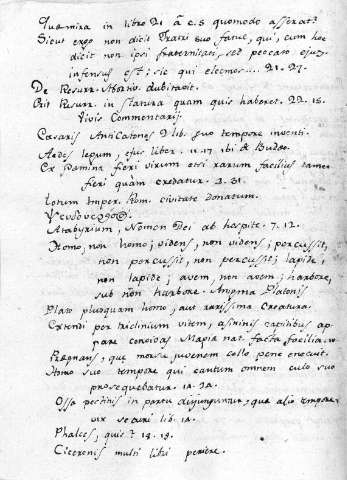 Quæ mira in libro 21 a c. 5 quomodo asserat?
Sicut ergo non dicit Fratri suo fatue, qui, cum hoc
dicit non ipsi fraternitati, sed peccato ejus
infensus est; sic qui eleemos... 21. 27.
De Resurr. Abortiv. dubitavit.
Erit Resurr. in statura quam quis haberet. 22. 15.
Vivis Commentarij.
Cæsaris Anticatones 2 lib. suo tempore inventi.
Aedes lepum, ejus liber. 11. 17 ibi de Budæo.
Ex fæmina fieri virum etsi rarum facilius tamen
fieri quam credatur. 3. 31.
totum Imper. Rom. civitate donatum.
Atabyrium, Nomen Dei ab hospite. 7. 12.
Homo, non homo; videns, non videns; percussit,
non percussit, non percussit; lapide,
non lapide; avem, non avem; harbore,
sub non harbore. Ænigma Platonis
Plato plusquam homo, aut rarissima creatura.
Extendi per triclinium vitem, asininis capitibus
convivas. Magia nat. facta facilia.
que morsu juvenem collo pene enecuit.
Homo suo tempore qui cantum omnem culo suo
prosequebatur. 14. 24.
Ossa pectinis in partu disjunguntur, quæ alio tempore
vix securi lib. 14.
Phalces, quis? 18. 13.
Ciceronis multi libri periere.